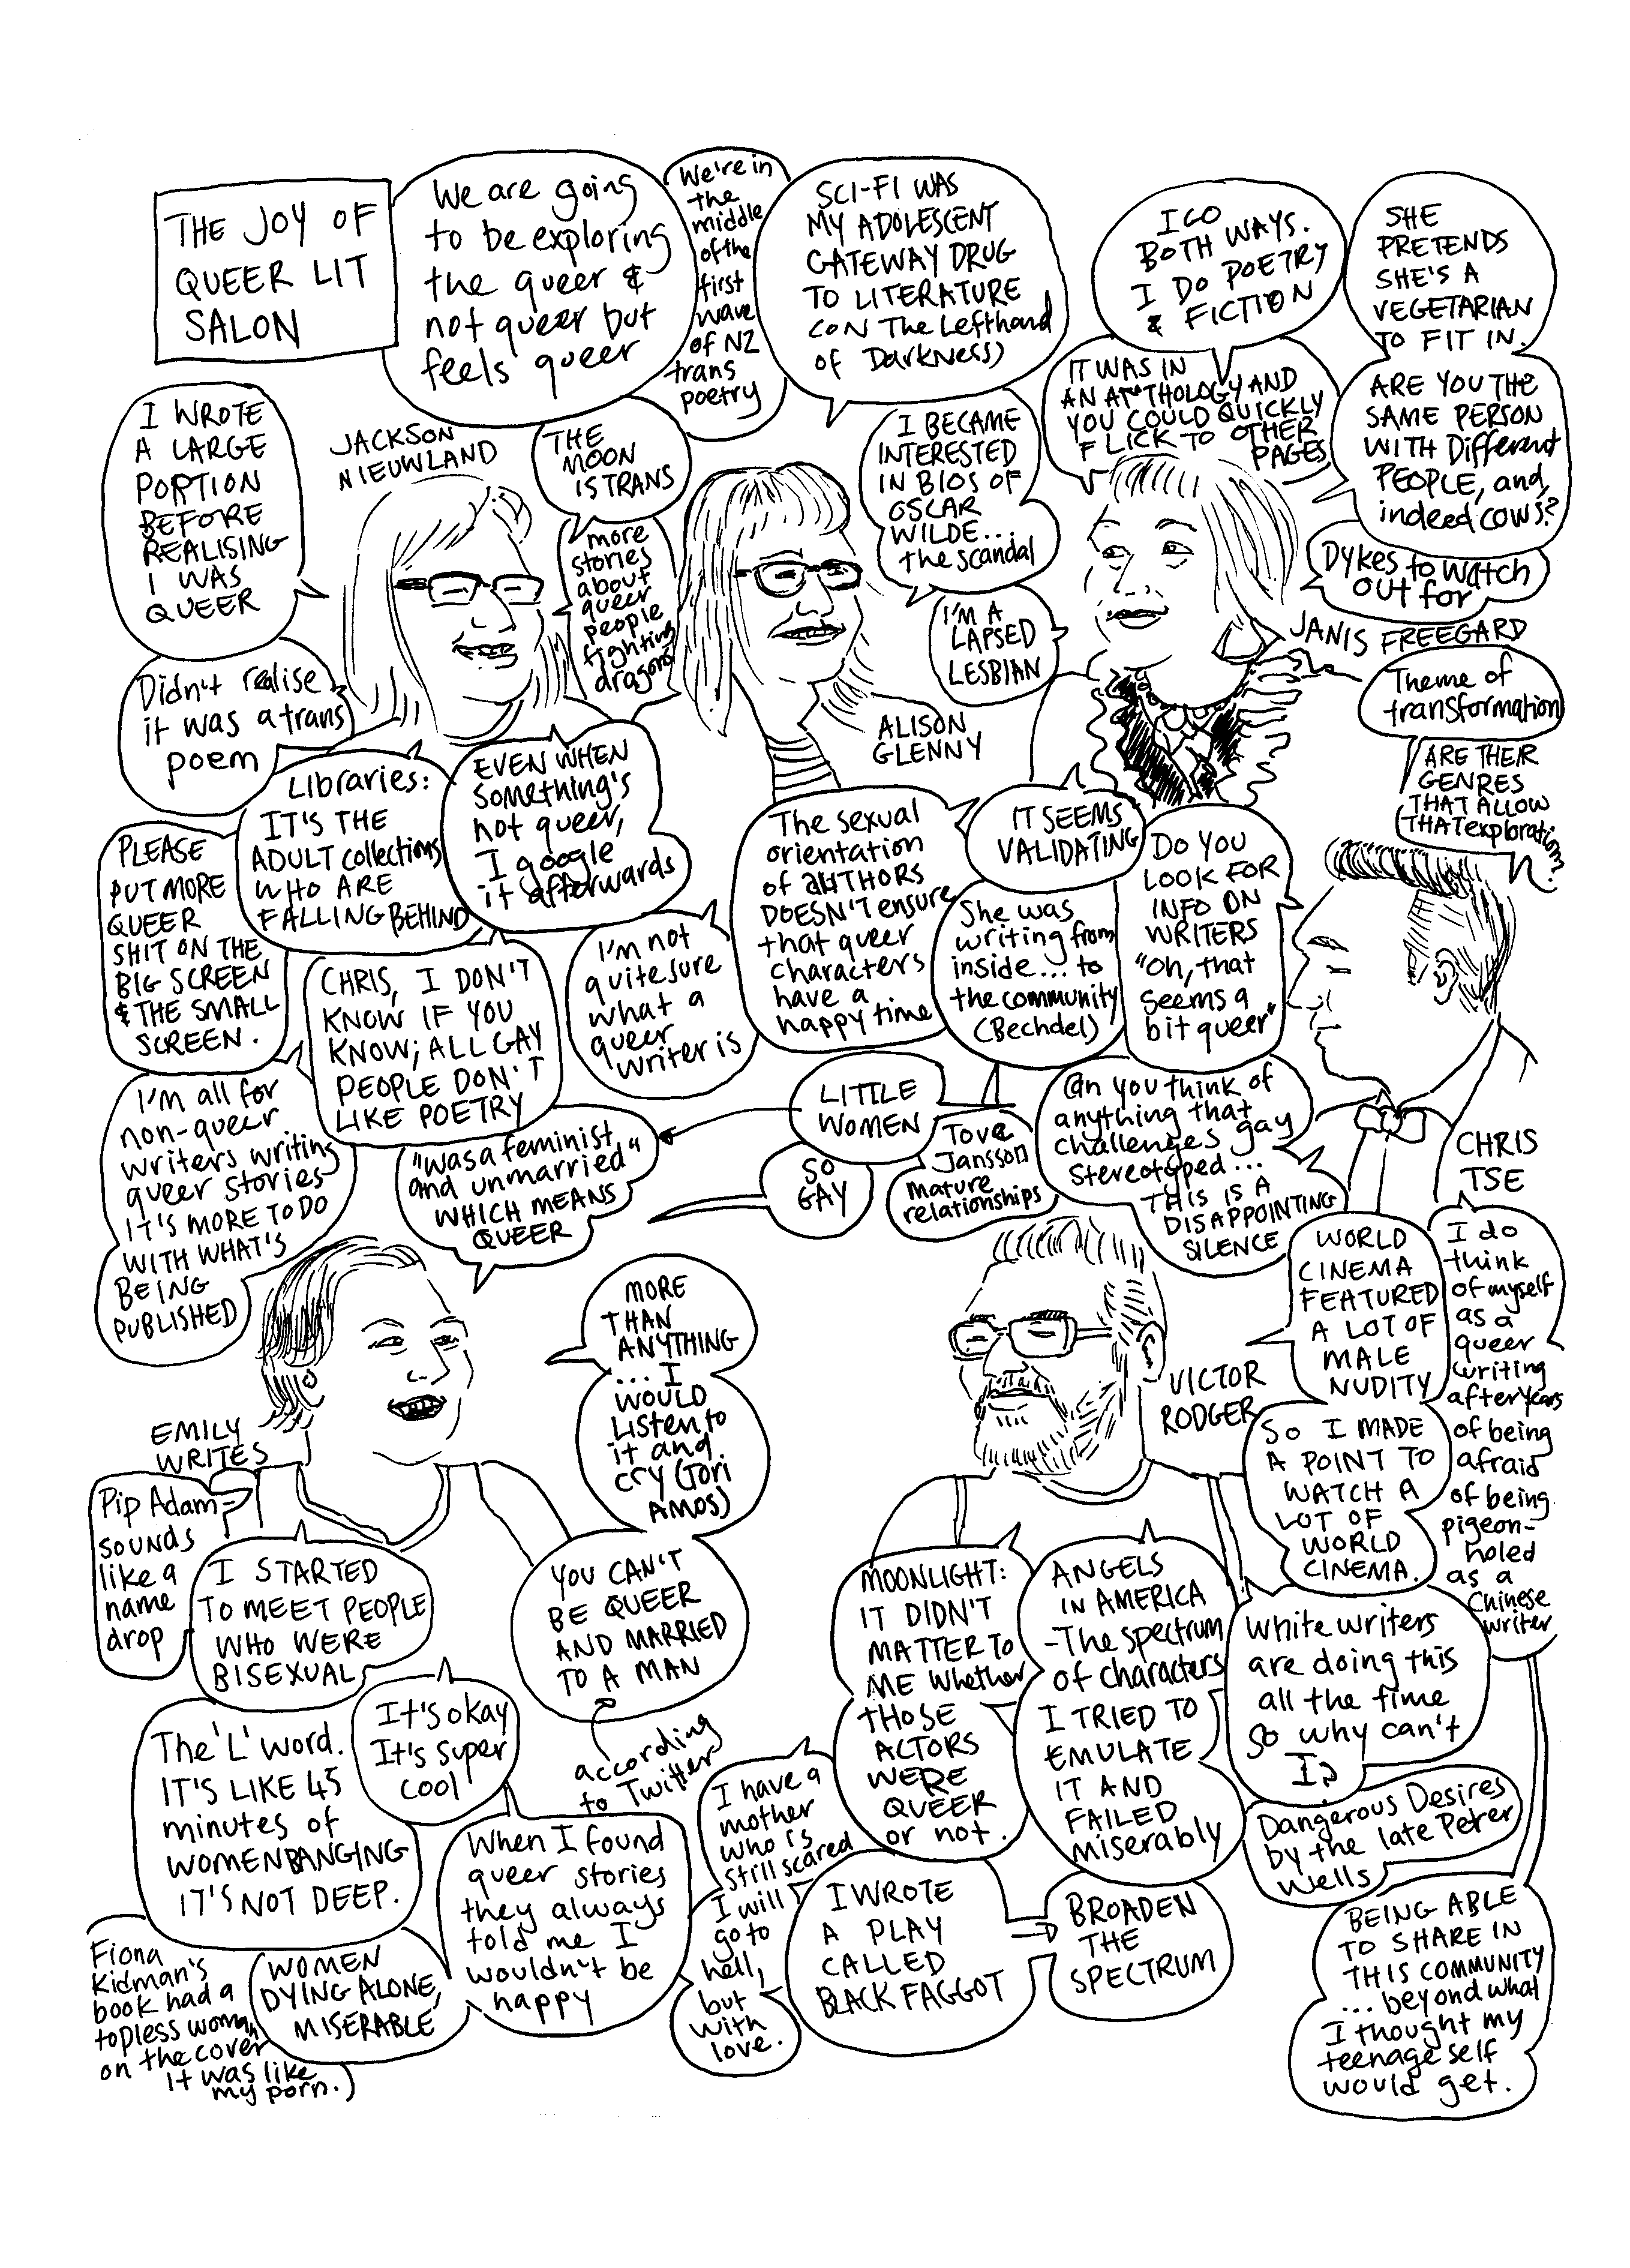 THE JOY OF
QUEER LIT
SALON
We are going
to be exploring
the queer &
not queer but
feels queer
We're in
the
middle
of the
first
wave
of NZ
trans
poetry
SCI-FI WAS
MY ADOLESCENT
GATEWAY DRUG
TO LITERATURE
CON The Lefthand
of Darkness)
I GO
BOTH WAYS.
I DO POETRY
& FICTION
SHE
PRETENDS
SHE'S A
VEGETARIAN
TO FIT IN.
I WROTE
A LARGE
PORTION
BEFORE
REALISING
I WAS
QUEER
JACKSON
NIEUWLAND
THE
MOON
IS TRANS
more
stories
about
queer
people
fighting
dragons
I BECAME
INTERESTED
IN BIOS OF
OSCAR
WILDE...
the scandal
IT WAS IN
AN ANTHOLOGY AND
YOU COULD QUICKLY
FLICK TO OTHER
PAGES
ARE YOU THE
SAME PERSON
WITH Different
PEOPLE, and,
indeed cows?
Dykes to watch
OUT for
I'M A
LAPSED
LESBIAN
JANIS FREEGARD
Theme of
transformation
ARE THEIR
GENRES
THAT ALLOW
THAT exploration?
Didn't realise
it was a trans
poem
ALISON
GLENNY
Libraries:
IT'S THE
ADULT collections
WHO ARE
FALLING BEHIND
EVEN WHEN
something's
not queer,
I google
it afterwards
PLEASE
PUT MORE
QUEER
SHIT ON THE
BIG SCREEN
& THE SMALL
SCREEN.
CHRIS, I DON'T
KNOW IF YOU
KNOW; ALL GAY
PEOPLE DON'T
LIKE POETRY
I'm not
quite sure
what a
queer
writer is
The sexual
orientation
of AUTHORS
DOESN'T ensure
that queer
characters
have a
happy time
IT SEEMS
VALIDATING
She was
writing from
inside... to
the community
(Bechdel)
DO YOU
LOOK FOR
INFO ON
WRITERS
"Oh, that
seems a
bit queer"
I'm all for
non-queer
writers writing
queer stories
IT'S MORE TO DO
WITH WHAT'S
BEING
PUBLISHED
"was a feminist,
and unmarried"
WHICH MEANS
QUEER
LITTLE
WOMEN
SO
GAY
Tove
Jansson
mature
relationships
Can you think of
anything that
challenges gay
stereotyped...
THIS IS A
DISAPPOINTING
SILENCE
CHRIS
TSE
WORLD
CINEMA
FEATURED
A LOT OF
MALE
NUDITY
I do
think
of myself
as a
queer
writing
after years
of being
afraid
of being
pigeon-
holed
as a
Chinese
writer
MORE
THAN
ANYTHING
... I
WOULD
Listen to
it and
cry (Tori
AMOS)
EMILY
WRITES
VICTOR
RODGER
SO I MADE
A POINT TO
WATCH A
LOT OF
WORLD
CINEMA.
Pip Adam
sounds
like a
name
drop
I STARTED
TO MEET PEOPLE
WHO WERE
BISEXUAL
YOU CAN'T
BE QUEER
AND MARRIED
TO A MAN
according
to Twitter
MOONLIGHT:
IT DIDN'T
MATTER TO
ME whether
THOSE
ACTORS
WERE
QUEER
or not.
ANGELS
IN AMERICA
-The spectrum
of characters
I TRIED TO
EMULATE
IT AND
FAILED
miserably
White writers
are doing this
all the time
so why can't
I?
The 'L' word.
IT'S LIKE 45
minutes of
WOMEN BANGING
IT'S NOT DEEP.
It's okay
It's super
cool
When I found
queer stories
they always
told me I
wouldn't be
happy
I have a
mother
who is
still scared
I will
go to
hell,
but
with
love.
Dangerous Desires
by the late Peter
Wells
Fiona
Kidman's
book had a
topless woman
on the cover
it was like
my porn.)
WOMEN
DYING ALONE,
MISERABLE
I WROTE
A PLAY
CALLED
BLACK FAGGOT
BROADEN
THE
SPECTRUM
BEING ABLE
TO SHARE IN
THIS COMMUNITY
... beyond what
I thought my
teenage self
would get.